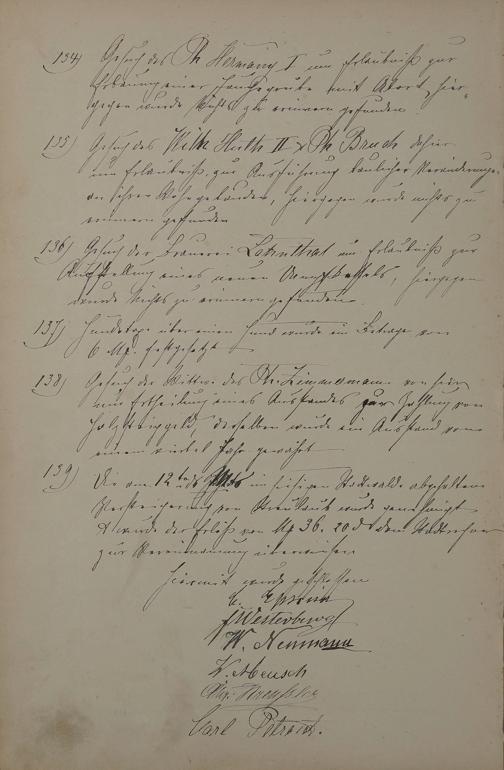 134) Gesuch des Ph. Hermäny I um Erlaubniß zur
Erbauung einer Hausgrube mit Abort, hier-
gegen wurde Nichts zu erinnern gefunden.
135) Gesuch des Wilh. Hirth II & Ph. Bruch dahier
um Erlaubniß zur Ausführung baulicher Veränderungen
an ihren Wohngebäuden, hiergegen wurde nichts zu
erinnern gefunden
136) Gesuch der Brauerei um Erlaubniß zur
Aufstellung eines neuen Dampfkessels, hiergegen
wurde Nichts zu erinnern gefunden.
137) Hundetaxe über einen Hund wurde im Betrage von
6 Mk. festgesetzt
138) Gesuch der Wittwe des Ph. Zimmermann von hier
um Ertheilung eines Ausstandes zur Zahlung von
Holzsteiggeld, derselben wurde ein Ausstand von
einem viertel Jahr gewährt
139) Die am 12ten ds Mts im hiesigen Stadtwalde abgehaltene
Versteigerung von wurde genehmigt
& wurde der Erlös von Mk 36. 20 d dem Stadtrechner
zur Vereinnahmung überwiesen
Hiermit wurde geschlossen
Westerburg
W. Neumann
W. Meusch
Carl